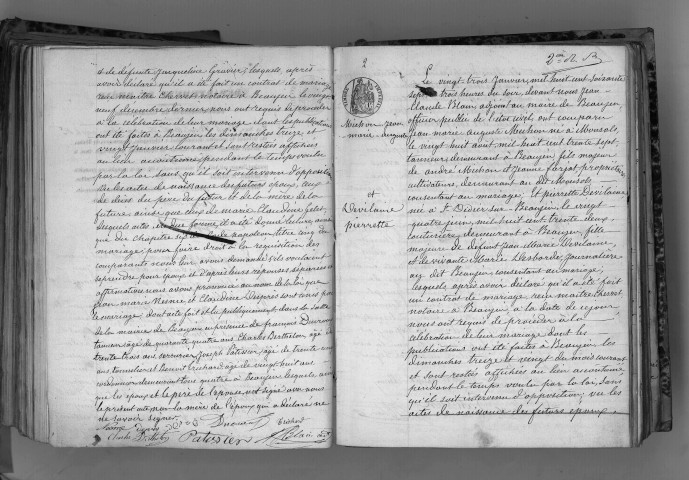 et de défunte Jacqueline Gravier, lesquels, après
avoir déclaré qu'il a été fait un contrat de mariage
maître notaire à Beaujeu le vingt
neuf décembre dernier, nous ont requis de procéder
à la célébration de leur mariage dont les publications
ont été faites à Beaujeu les dimanches treize et
vingt Janvier courant et sont restées affichées
au lieu accoutumé pendant le temps voulu
par la loi sans qu'il soit intervenu d'opposition
les actes de naissance des futurs époux, ceux
de décès du père du futur et de la mère de la
future ainsi que celui de marie Claudine
lesquels actes en due forme, d'acte donné lecture
que du chapitre six du code napoléon titre cinq du
mariage, pour faire droit à la requisition des
comparants nous leur avons demandé s'ils voulaient
se prendre pour époux et d'après leurs réponses séparées et
affirmatives nous avons prononcé au nom de la loi que
Jean marie et Claudine Dupres sont unis par
le mariage, dont acte fait et lu publiquement dans la salle
de la mairie de Beaujeu en présence de françois Duivon
tanneur âgé de quarante quatre ans Charles Berthelon âgé de
trente trois ans serrurier Joseph Patissier âgé de trente
ans tonnelier et Benoit Trichard âgé de vingt huit ans
cordonnier demeurant tous quatre à Beaujeu lesquels ainsi
que les époux et le père de l'épouse, ont signé avec nous
le présent acte non la mère de l'époux qui a déclaré ne
le savoir signer.
Trichard
Patissier
Blain
2
2me Dt. B
Michon Jean
marie auguste
et
Devilaine
pierrette
Le vingt-trois Janvier, mil huit cent soixante
sept à trois heures du soir, devant nous Jean
Claude Blain adjoint au maire de Beaujeu,
officier public de l'état civil, ont comparu
Jean marie auguste Michon né à Monsols,
le vingt huit août mil huit cent trente sept,
tanneur demeurant à Beaujeu, fils majeur
de andré Michon et Jeanne farjot propriétaires
cultivateurs, demeurant au dit Monsols,
consentant au mariage; Et pierrette Devilaine
née à St Didier sur Beaujeu, le vingt
quatre juin, mil huit cent trente deux,
couturière, demeurant à Beaujeu, fille
majeure de défunt Jean Marie Devilaine,
et de vivante Marie Desborde, Journalière
au dit Beaujeu consentant au mariage;
lesquels, après avoir déclaré qu'il a été fait
un contrat de mariage reçu maître
notaire à Beaujeu à la date de ce jour
nous ont requis de procéder à la
célébration de leur mariage dont les
publications ont été faites à Beaujeu les
dimanches treize et vingt du mois courant
et sont restées affichées au lieu accoutumé
pendant le temps voulu par la loi, sans
qu'il soit intervenu d'opposition; vu les
actes de naissance des futurs époux